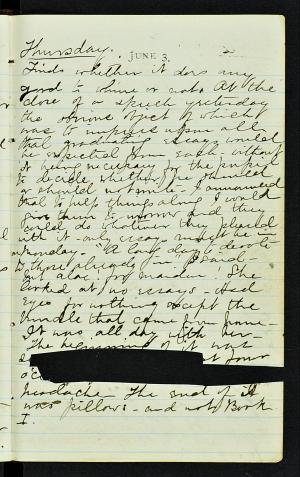 Thursday.
JUNE 3.
Finds whether it does any
good to whine or not. At the
close of a speech yesterday
the obvious object of which
was to impress upon all
that graduating essays would
be expected from each without
it being necessary for the pupil
to decide whether she
or should not write. I announced
that to help things along I would
give them to morrow and they
could do whatever they pleased
with it - only essay must be in
Monday. "A long day to devote
to those already in" I said
but alas for maiden! She
looked at no essays. Had
eyes for nothing except the
bundle that came from home.
It was all day with her.
The beginning of it was
at four
headache The end of it
was pillows - and not Book
I.